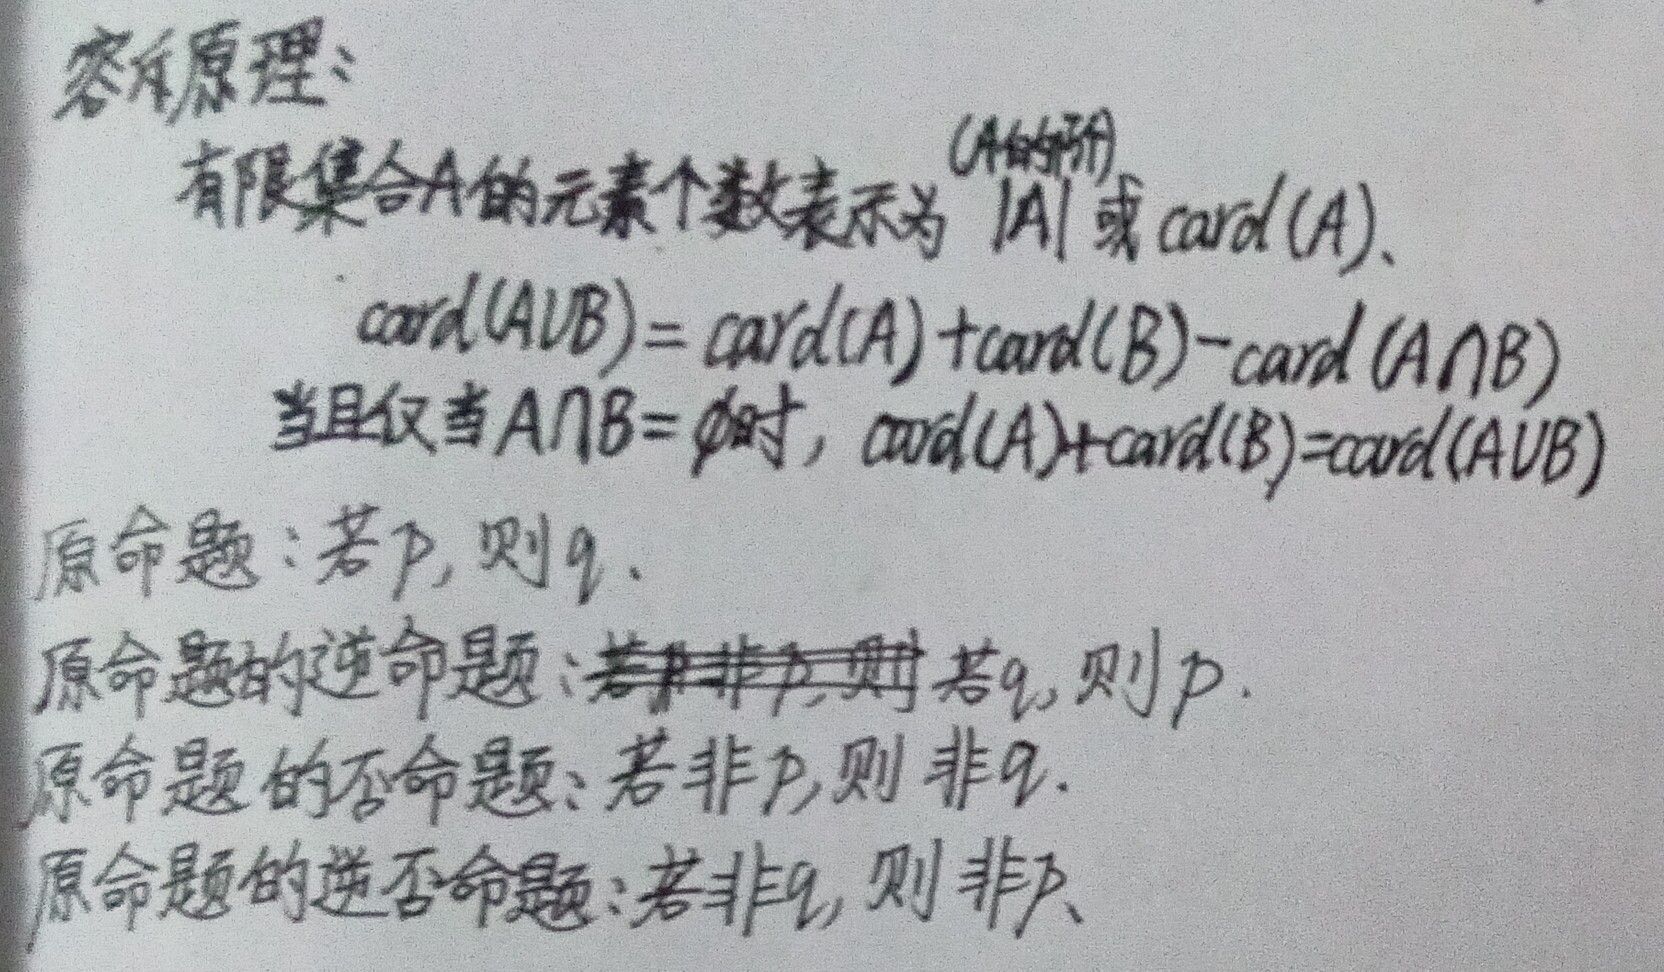 容斥原理:
有限集合A的元素个数表示为 |A| (A的阶) 或 card(A).
card(A∪B)=card(A)+card(B)-card(A∩B)
当且仅当A∩B=∅时, card(A)+card(B)=card(A∪B)
原命题:若p,则q.
原命题的逆命题:若q,则p.
原命题的否命题:若非p,则非q.
原命题的逆否命题:若非q,则非p.